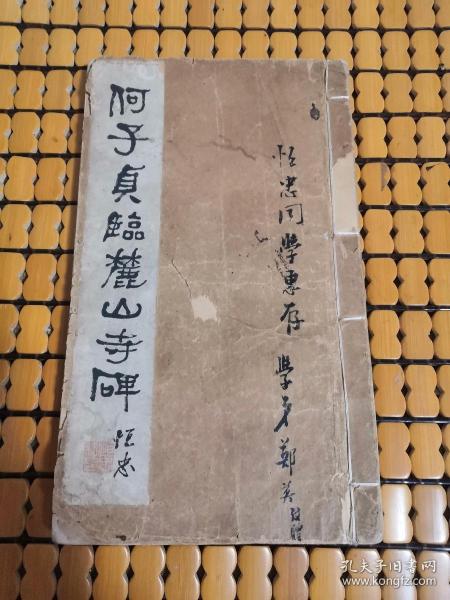 何子貞臨麓山寺碑
恒忠
恒忠同學惠存
學弟鄭英敬贈
孔夫子旧书网
www.kongfz.com